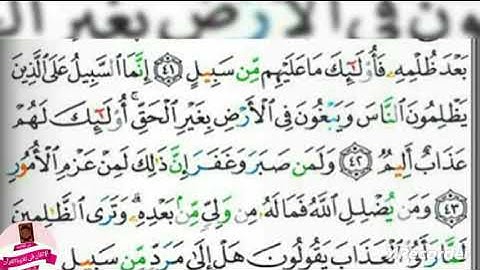 ـغُونَ فِى ٱلْأَرْضِ بِغَيْرِ ٱلْـ
بَعْدَ ظُلْمِهِۦ فَأُو۟لَـٰٓئِكَ مَا عَلَيْهِم مِّن سَبِيلٍ ٤١ إِنَّمَا ٱلسَّبِيلُ عَلَى ٱلَّذِينَ
يَظْلِمُونَ ٱلنَّاسَ وَيَبْغُونَ فِى ٱلْأَرْضِ بِغَيْرِ ٱلْحَقِّ ۚ أُو۟لَـٰٓئِكَ لَهُمْ
عَذَابٌ أَلِيمٌ ٤٢ وَلَمَن صَبَرَ وَغَفَرَ إِنَّ ذَٰلِكَ لَمِنْ عَزْمِ ٱلْأُمُورِ
٤٣ وَمَن يُضْلِلِ ٱللَّهُ فَمَا لَهُۥ مِن وَلِىٍّ مِّنۢ بَعْدِهِۦ ۗ وَتَرَى ٱلظَّـٰلِمِينَ
ٱلْعَذَابَ يَقُولُونَ هَلْ إِلَىٰ مَرَدٍّ مِّن سَبِيلٍ